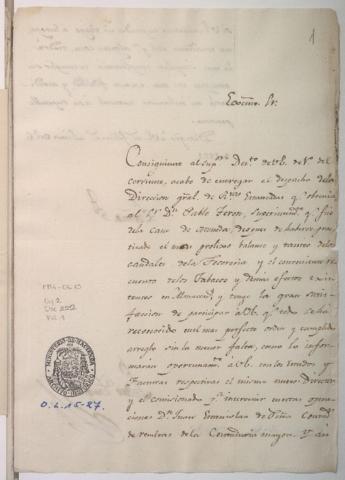 1
Exmo. Sr.
Consiguiente al Supr. Decto. de V.E. de
corriente, acabo de entregar el despacho de la
Direccion gral. de Rtas. Estancadas qe. obtenia
al Sr. Dn. Pablo Feron, Superintendte. qe. fué
de la Casa de Moneda, despues de haberse prac-
ticado el mas prolixo balance y tanteo de los
caudales de la Tesoreria y el conveniente re-
cuento de los Tabacos y demás efectos exis-
tentes en Almacens, y tengo la gran satis-
faccion de participar a V.E. qe. todo se ha
reconocido en el mas perfecto orden y cumplido
arreglo sin la menor falta, como lo infor-
maran oportunamte. a V.E. con los Estados y
Facturas respectivas el mismo nuevo Director
y el comisionado pa. intervenir cuentas opera-
ciones Dn. Juan Estanislao de Peña Contad.
de resultas de la Contaduria mayor. Y al
MH-OL 15
Caj 2
Doc 202
Fol 1
MINISTERIO DE HACIENDA
ARCHIVO HISTORICO
O.L. 15-27.